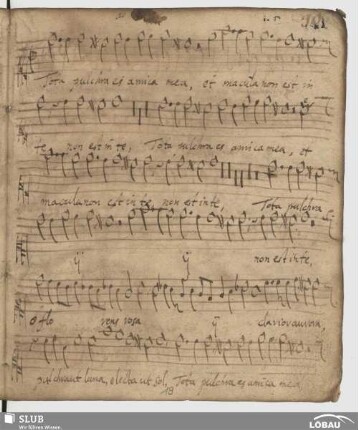 Tota pulchra es amica mea, et macula non est in
te, non est in te, Tota pulchra es amica mea, et
macula non est in te, non est in te, Tota pulchra
ij ij non est in te,
o flo rens rosa ij
pulchra ut luna, electa ut sol, Tota pulchra es amica mea
13
SLUB
Wir führen Wissen.
LÖBAU